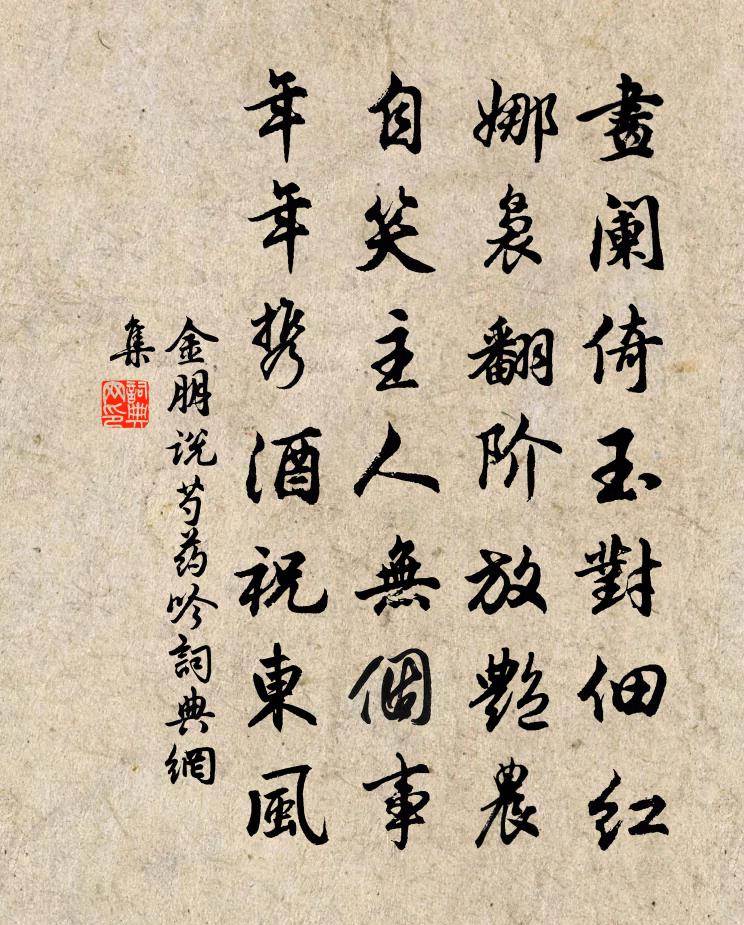 畫阑倚玉對佃红
娜袅翻阶放艷農
自笑主人無個事
年年携酒祝東風
金朋说芍药吟詞典網
集
詞典网印